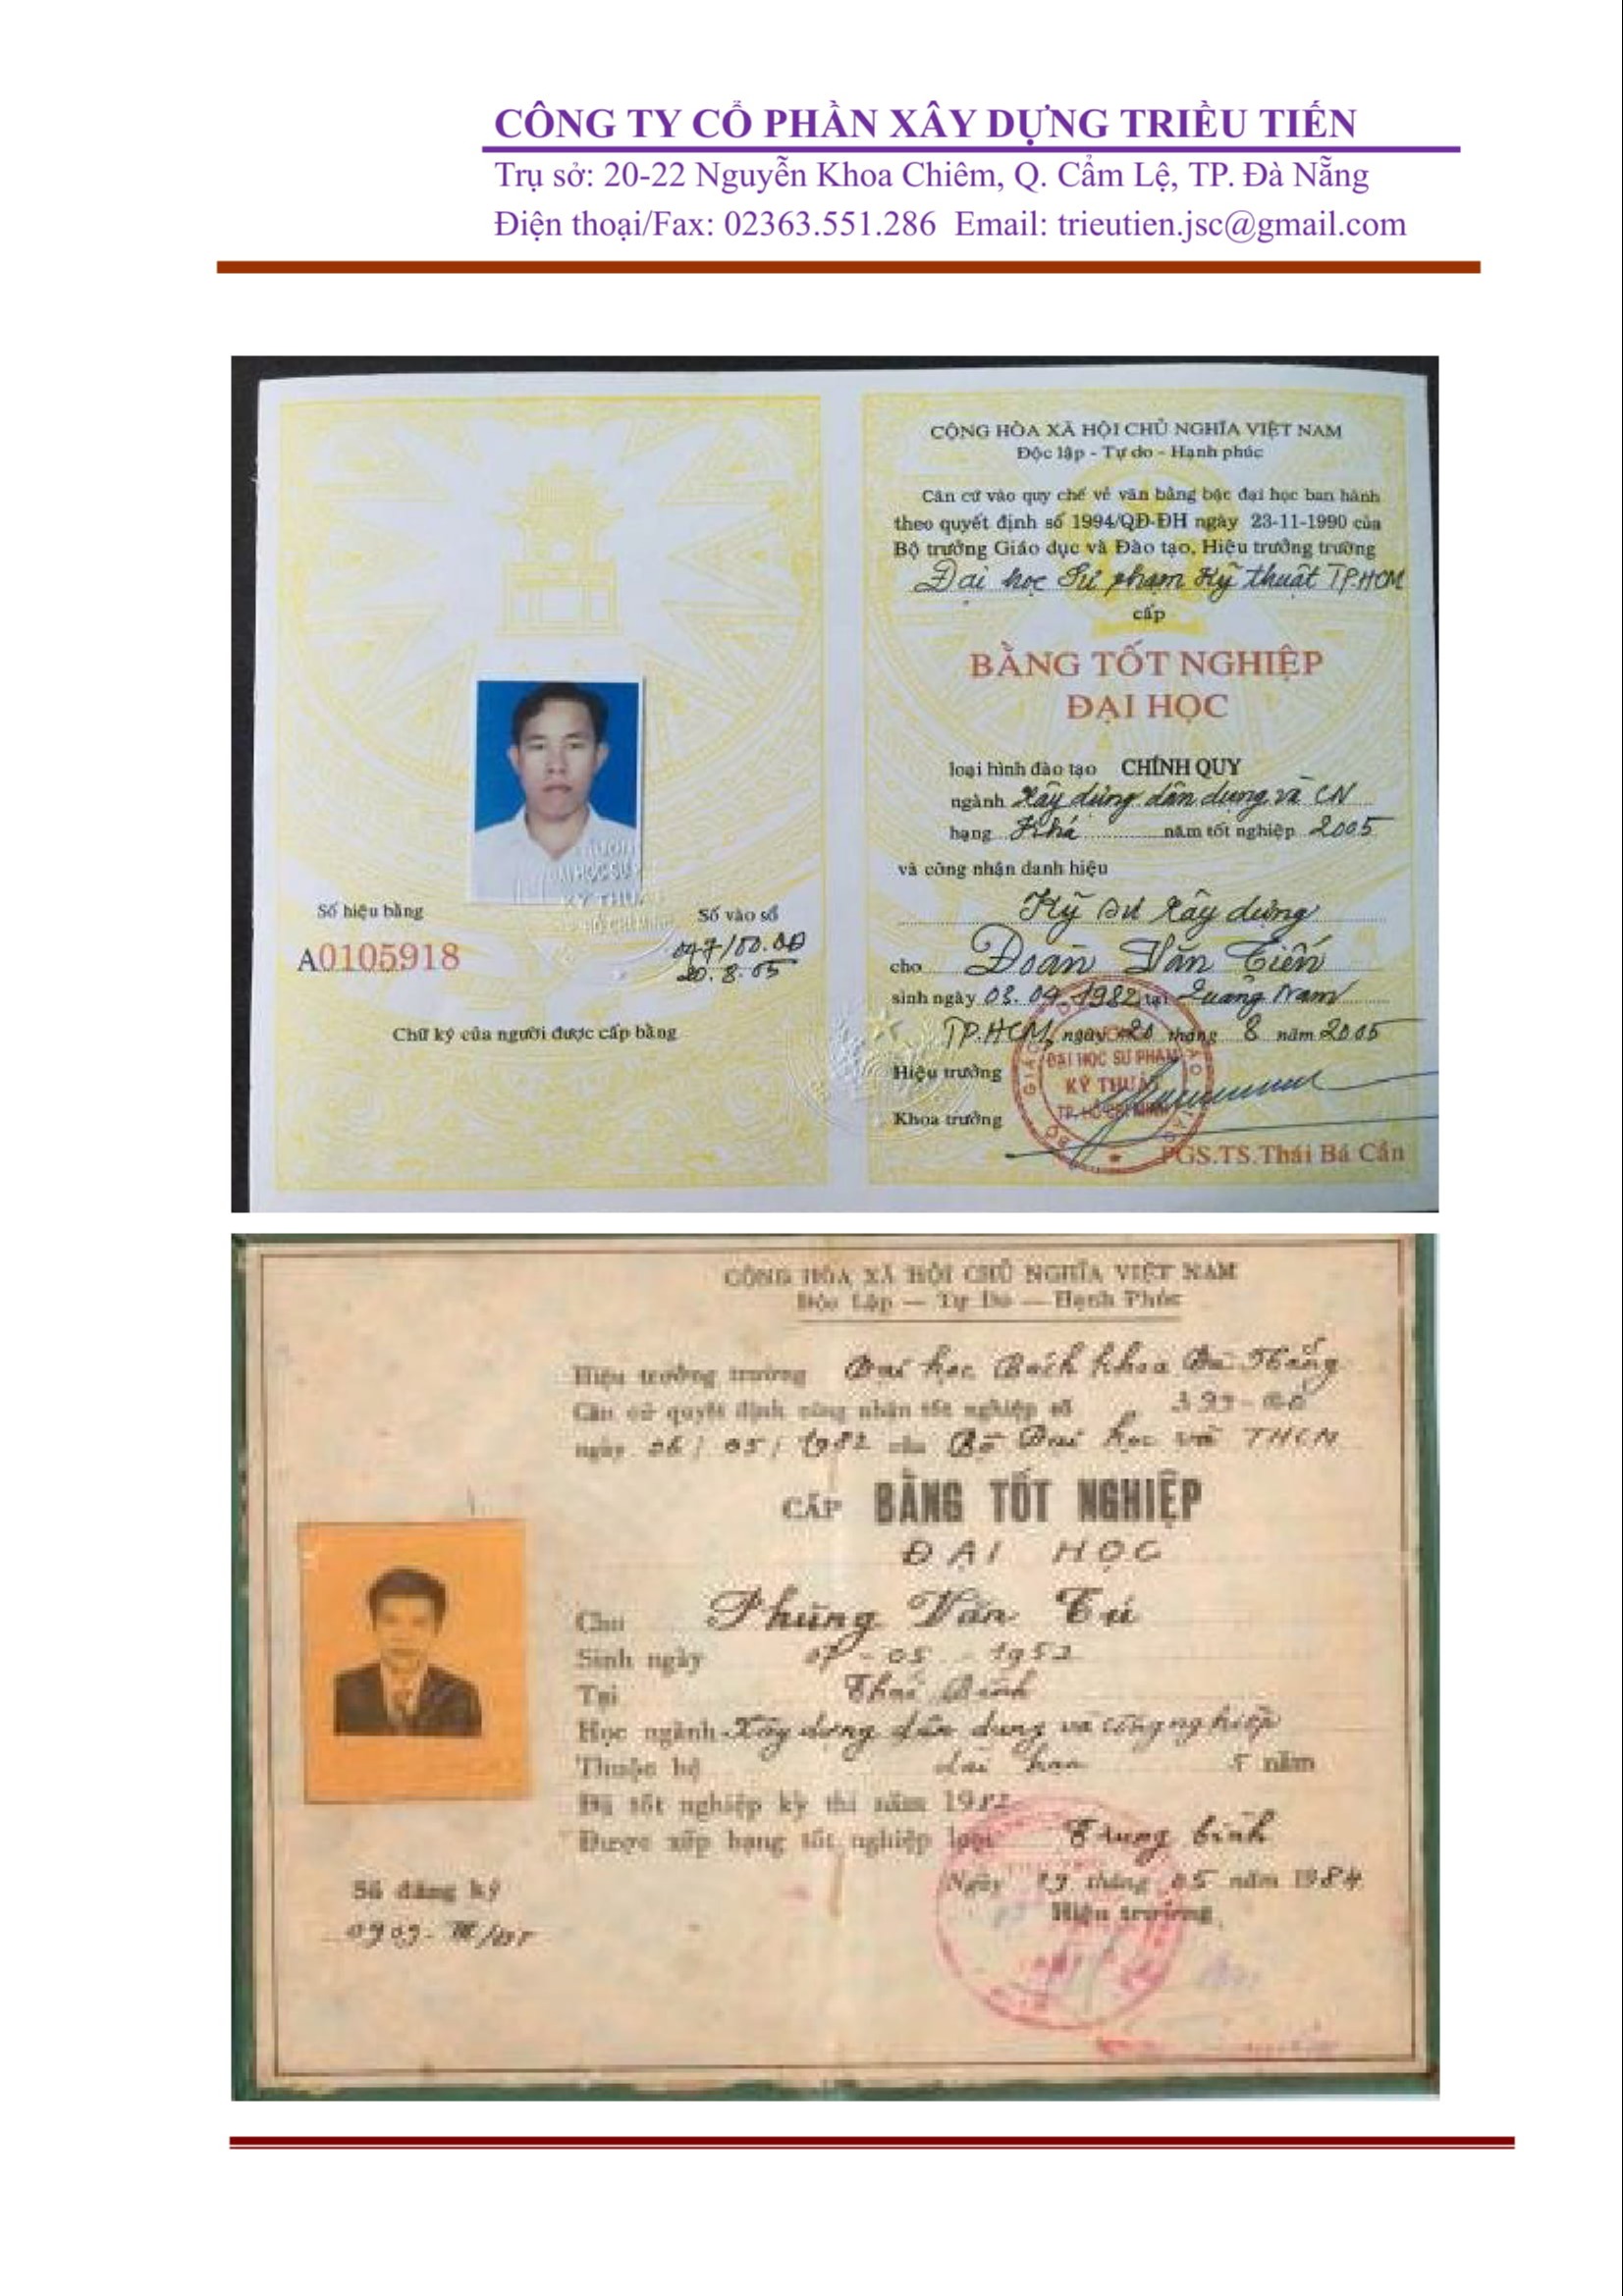 CÔNG TY CỔ PHẦN XÂY DỰNG TRIỀU TIẾN
Trụ sở: 20-22 Nguyễn Khoa Chiêm, Q. Cẩm Lệ, TP. Đà Nẵng
Điện thoại/Fax: 02363.551.286 Email: trieutien.jsc@gmail.com
CỘNG HÒA XÃ HỘI CHỦ NGHĨA VIỆT NAM
Độc lập - Tự do - Hạnh phúc
Căn cứ vào quy chế về văn bằng bậc đại học ban hành
theo quyết định số 1994/QĐ-ĐH ngày 23-11-1990 của
Bộ trưởng Giáo dục và Đào tạo, Hiệu trưởng trường
Đại học Sư phạm Kỹ thuật TP.HCM
cấp
BẰNG TỐT NGHIỆP
ĐẠI HỌC
loại hình đào tạo CHÍNH QUY
ngành Xây dựng dân dụng và CN
hạng Khá năm tốt nghiệp 2005
và công nhận danh hiệu
Kỹ sư Xây dựng
cho Đoàn Văn Tiến
sinh ngày 03.09.1982 tại Quảng Nam
TP.HCM, ngày 20 tháng 8 năm 2005
Hiệu trưởng
Khoa trưởng
ĐẠI HỌC SƯ PHẠM
KỸ THUẬT
TP. HỒ CHÍ MINH
PGS.TS.Thái Bá Cần
Số hiệu bằng
A0105918
Số vào sổ
20.8.05
Chữ ký của người được cấp bằng
CỘNG HÒA XÃ HỘI CHỦ NGHĨA VIỆT NAM
Độc Lập — Tự Do — Hạnh Phúc
Hiệu trưởng trường Đại học Bách khoa Đà Nẵng
Căn cứ quyết định công nhận tốt nghiệp số
ngày 06/05/1982 của Bộ Đại học và THCN
CẤP BẰNG TỐT NGHIỆP
ĐẠI HỌC
Cho Phùng Văn Tú
Sinh ngày 07-05-1952
Tại Thái Bình
Học ngành Xây dựng dân dụng và công nghiệp
Thuộc hệ dài hạn 5 năm
Đã tốt nghiệp kỳ thi năm 1982
Được xếp hạng tốt nghiệp loại Trung bình
Ngày 19 tháng 05 năm 1984
Hiệu trưởng
Số đăng ký